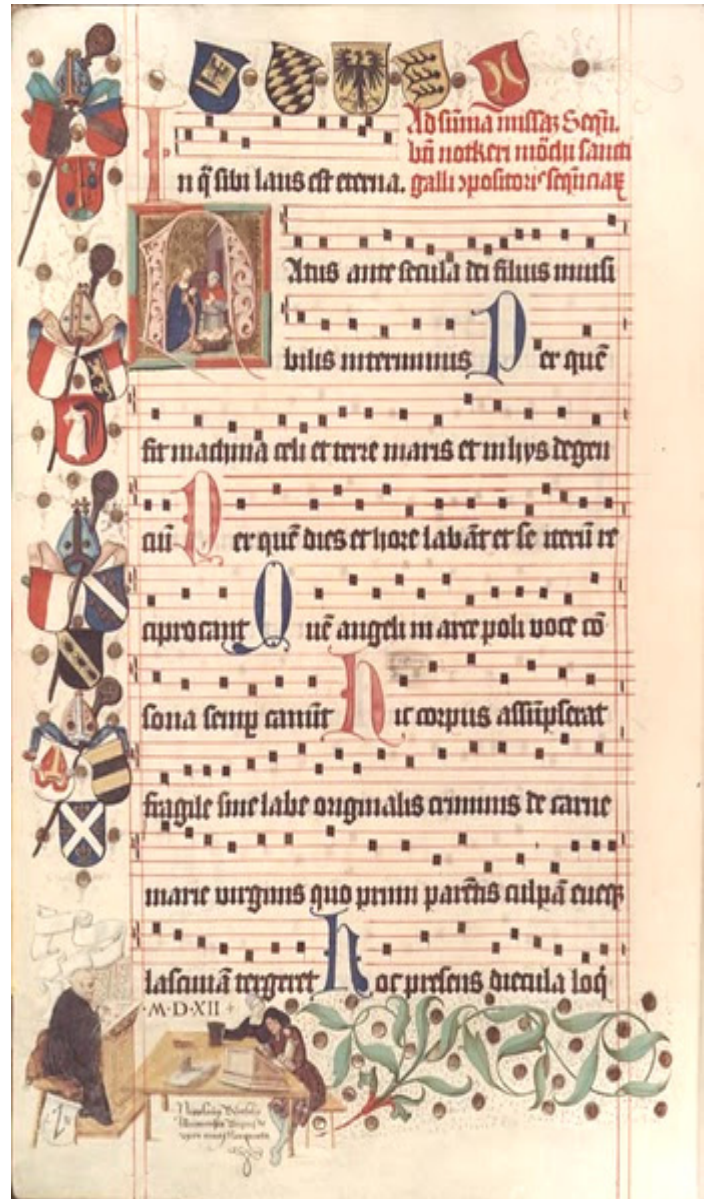 Ad sūmā missaȝ Sequ.
bti notkeri mōchi sancti
In q̄ sibi laus est eterna. galli ↄpositoris sequēciaꝝ
Natus ante secula dei filius inuisi
bilis interminus Per quē
fit machina celi et terre maris et in hys degen
ciū Per quē dies et hore labāt et se iterū re
ciprocant Quē angeli in arce poli voce cō
sona semꝑ canūt Hic corpus assūpserat
fragile sine labe originalis criminis de carne
marie virginis quo primi parētis culpā eueqꝫ
lasciuiā tergeret Hoc presens diecula loq̄
·M·D·XII